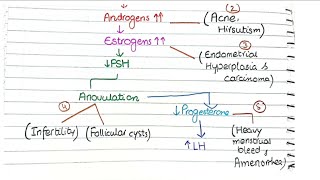 ②
Androgens ↑↑
(Acne,
Hirsutism)
③
Estrogens ↑↑
(Endometrial
Hyperplasia &
carcinoma)
↓FSH
Anovulation
④
⑤
↓Progesterone
(Infertility)
(Follicular cysts)
(Heavy
menstrual
bleed &
Amenorrhea)
↑LH